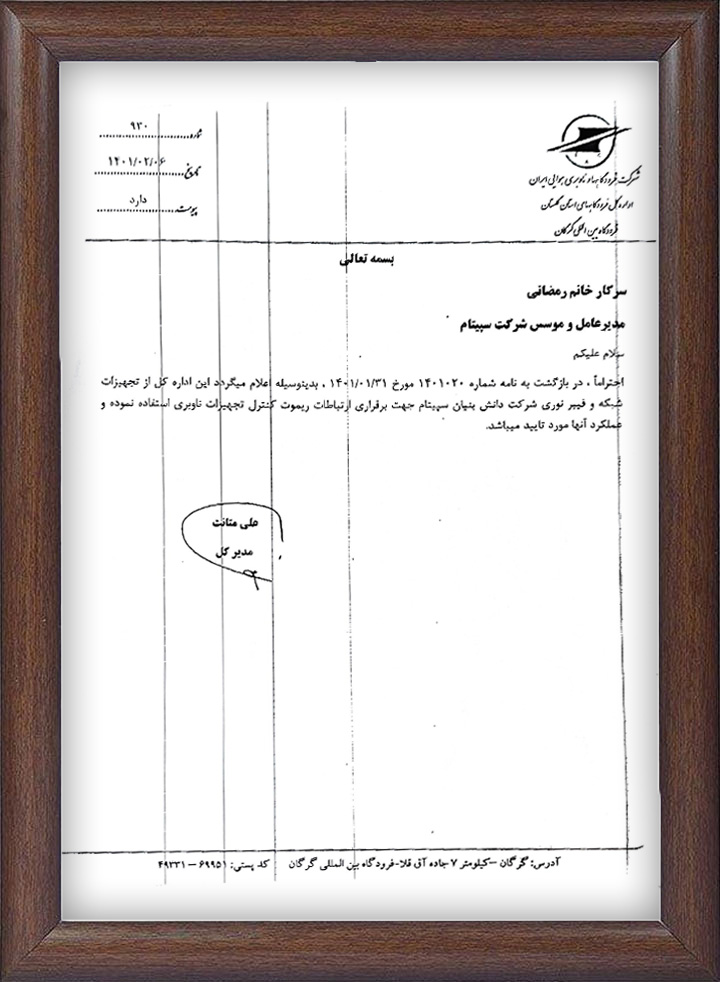 شماره ۹۳۰
تاریخ ۱۴۰۱/۰۲/۰۶
پیوست دارد
شرکت فرودگاهها و ناوبری هوایی ایران
اداره کل فرودگاههای استان گلستان
فرودگاه بین المللی گرگان
بسمه تعالی
سرکار خانم رمضانی
مدیرعامل و موسس شرکت سپیتام
سلام علیکم
احتراماً ، در بازگشت به نامه شماره ۱۴۰۱۰۲۰ مورخ ۱۴۰۱/۰۱/۳۱ ، بدینوسیله اعلام میگردد این اداره کل از تجهیزات
شبکه و فیبر نوری شرکت دانش بنیان سپیتام جهت برقراری ارتباطات ریموت کنترل تجهیزات ناوبری استفاده نموده و
عملکرد آنها مورد تایید میباشد.
علی متانت
مدیر کل
آدرس: گرگان –کیلومتر ۷ جاده آق قلا-فرودگاه بین المللی گرگان کد پستی: ۶۹۹۵۱ – ۴۹۳۳۱